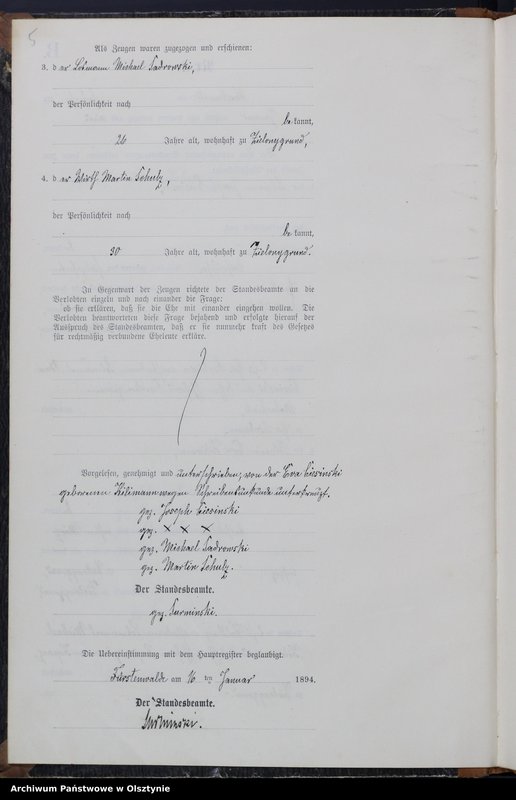 5
Als Zeugen waren zugezogen und erschienen:
3. d er Losmann Michael Sadrowski,
der Persönlichkeit nach
be kannt,
26 Jahre alt, wohnhaft zu Zielonygrund,
4. d er Wirth Martin Schulz,
der Persönlichkeit nach
be kannt,
30 Jahre alt, wohnhaft zu Zielonygrund.
In Gegenwart der Zeugen richtete der Standesbeamte an die
Verlobten einzeln und nach einander die Frage:
ob sie erklären, daß sie die Ehe mit einander eingehen wollen. Die
Verlobten beantworteten diese Frage bejahend und erfolgte hierauf der
Ausspruch des Standesbeamten, daß er sie nunmehr kraft des Gesetzes
für rechtmäßig verbundene Eheleute erkläre.
Vorgelesen, genehmigt und unterschrieben, von der Eva
geborenen wegen Schreibensunkunde unterkreuzt.
gez. Joseph
gez. X X X
gez. Michael Sadrowski
gez. Martin Schulz.
Der Standesbeamte.
gez. Surminski.
Die Uebereinstimmung mit dem Hauptregister beglaubigt.
Fürstenwalde am 16 ten Januar 1894.
Der Standesbeamte.
Surminski.
Archiwum Państwowe w Olsztynie